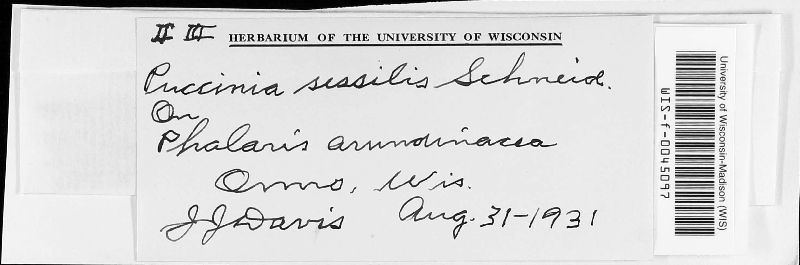 II III HERBARIUM OF THE UNIVERSITY OF WISCONSIN
Puccinia sessilis Schneid.
On
Phalaris arundinacea
Onno, Wis.
J J Davis Aug. 31-1931
University of Wisconsin-Madison (WIS)
WIS-f-0045097